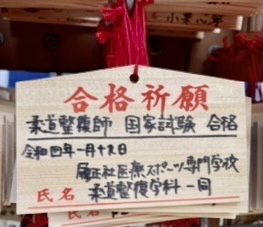 合格祈願
柔道整復師 国家試験 合格
令和四年一月十八日
履正社医療スポーツ専門学校
氏名 柔道整復学科一同